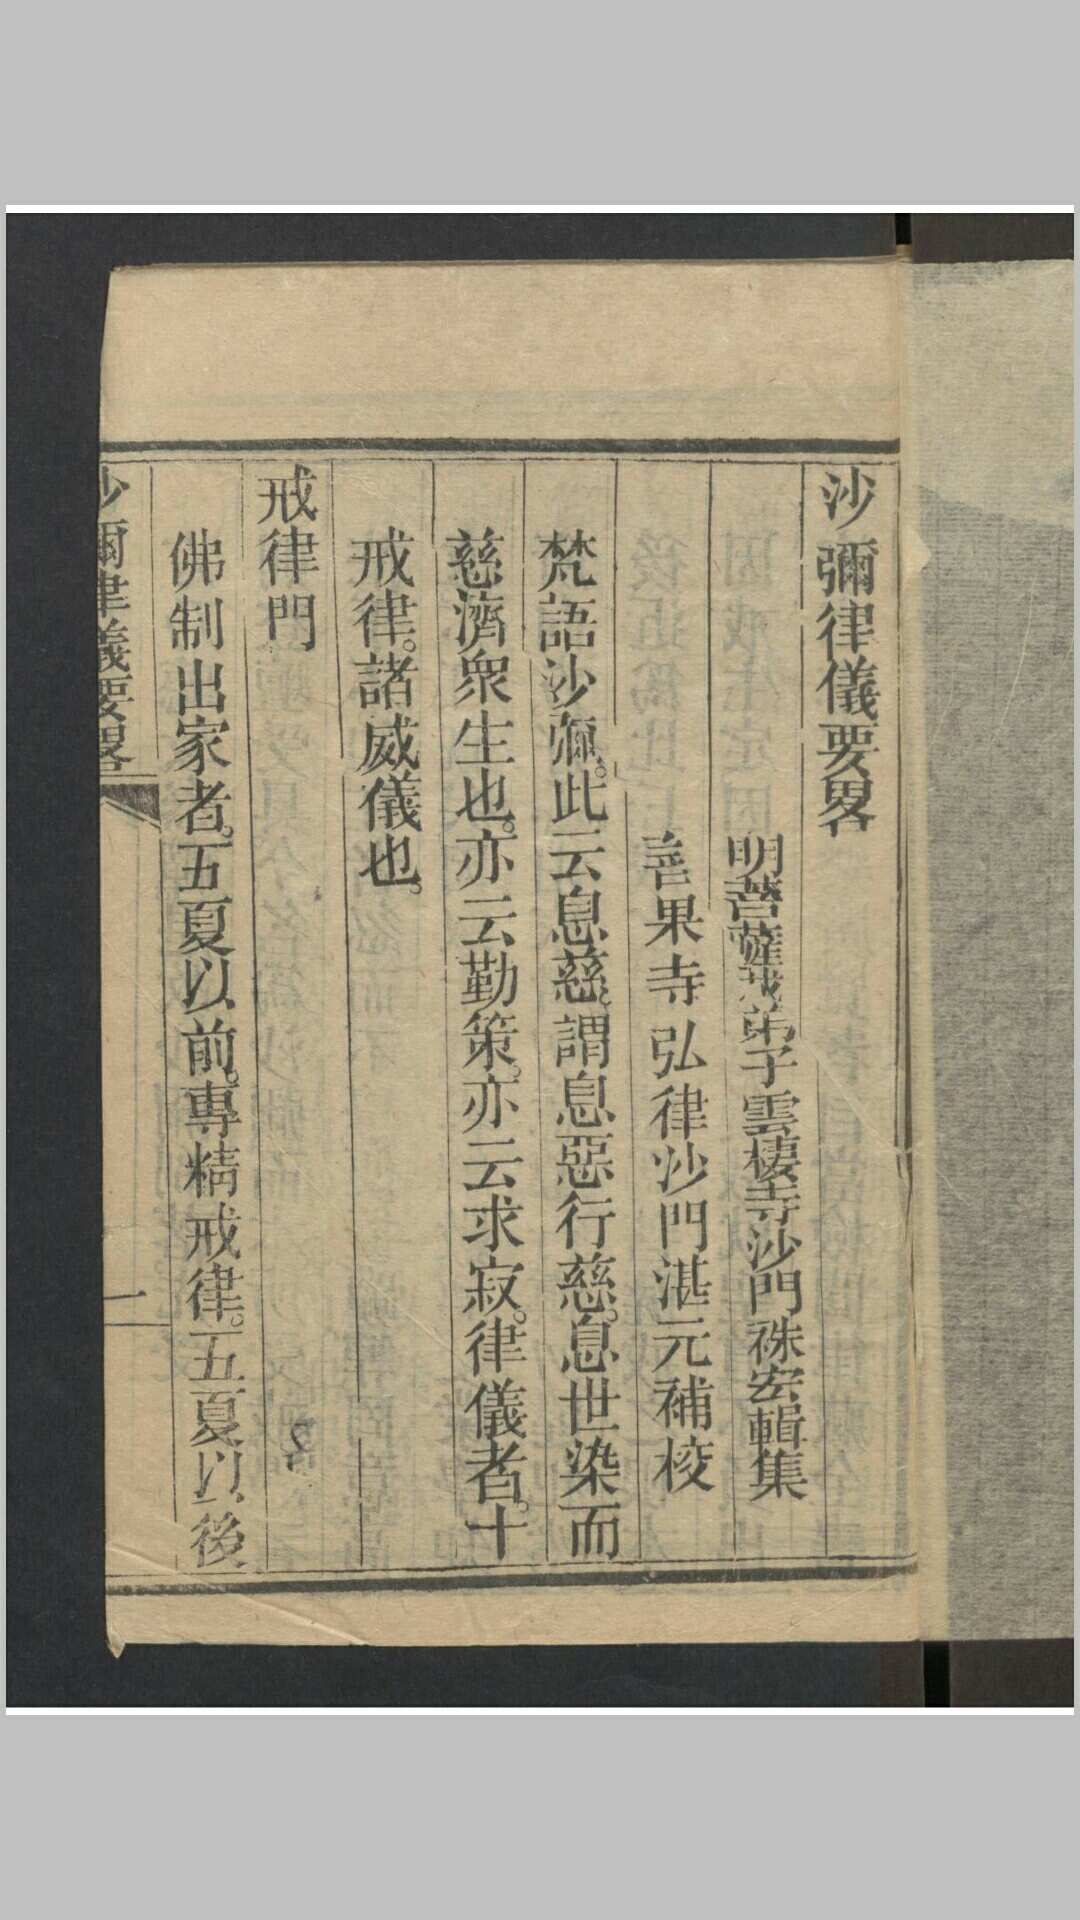 沙彌律儀要畧
明菩薩戒弟子雲棲寺沙門祩宏輯集
善果寺弘律沙門湛元補校
梵語沙彌。此云息慈。謂息惡行慈。息世染而
慈濟衆生也。亦云勤策。亦云求寂。律儀者。十
戒律。諸威儀也。
戒律門
佛制出家者。五夏以前。專精戒律。五夏以後
沙彌律儀要畧
一